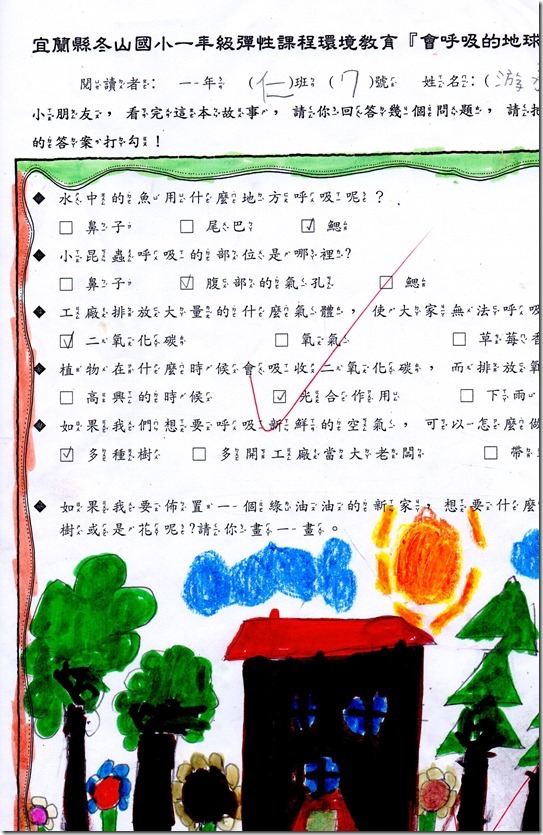 宜蘭縣冬山國小一年級彈性課程環境教育『會呼吸的地球
閱讀者： 一年 (仁)班 (7)號 姓名：(游
小朋友，看完這本故事，請你回答幾個問題，請把
的答案打勾！
◆ 水中的魚用什麼地方呼吸呢？
□ 鼻子 □ 尾巴 ☑ 鰓
◆ 小昆蟲呼吸的部位是哪裡？
□ 鼻子 ☑ 腹部的氣孔 □ 鰓
◆ 工廠排放大量的什麼氣體，使大家無法呼吸
☑ 二氧化碳 □ 氧氣 □ 草莓香
◆ 植物在什麼時候會吸收二氧化碳，而排放氧
□ 高興的時候 ☑ 光合作用 □ 下雨
◆ 如果我們想要呼吸新鮮的空氣，可以怎麼做
☑ 多種樹 □ 多開工廠當大老闆 □ 帶
◆ 如果我要佈置一個綠油油的新家，想要什麼
樹或是花呢？請你畫一畫。